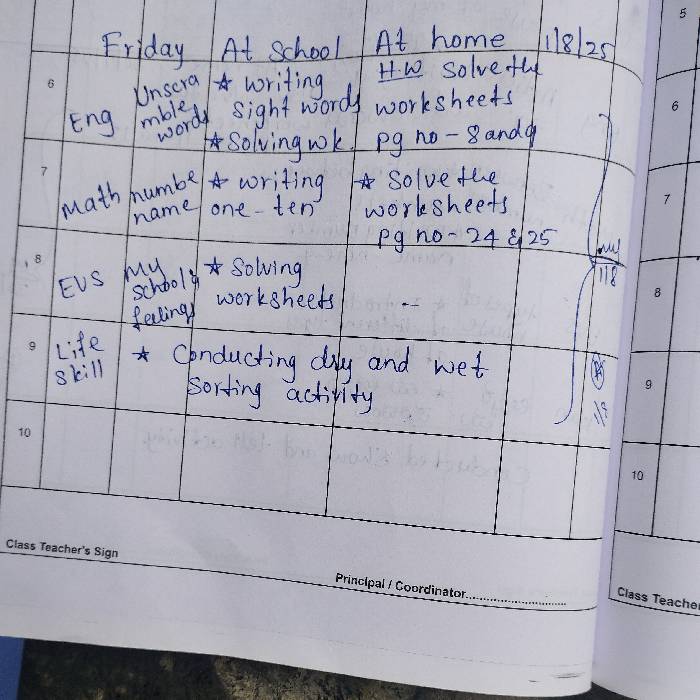 Friday At School At home 1/8/25
6 Eng Unscra ★ writing H.W Solve the
mble sight words worksheets
words ★ Solving wk. pg no - 8 and 9
7 Math numbe ★ writing ★ Solve the
name one - ten worksheets
pg no - 24 & 25
8 EVS My ★ Solving
school & worksheets --
feelings
1/8
9 Life ★ Conducting dry and wet
Skill Sorting activity
10
Class Teacher's Sign
Principal / Coordinator
5
6
7
8
9
10
Class Teacher